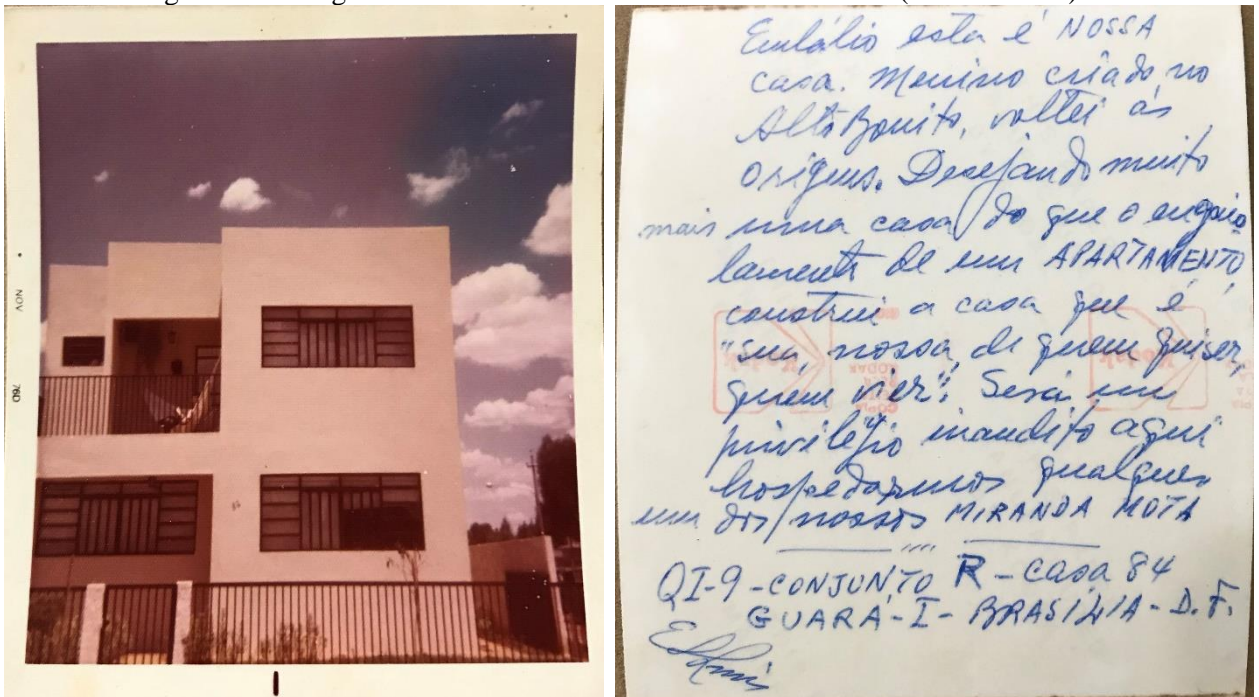 NOV
76D
Eulálio esta é NOSSA
casa. Menino criado no
Alto Bonito, voltei às
origens. Desejando muito
mais uma casa do que o engaio
lamento de um APARTAMENTO,
construi a casa que é
"sua, nossa, de quem quiser,
quem vier". Será um
privilégio inaudito aqui
hospedarmos qualquer
um dos nossos MIRANDA MOTA
QI-9-CONJUNTO R-casa 84
GUARÁ-I-BRASÍLIA-D.F.